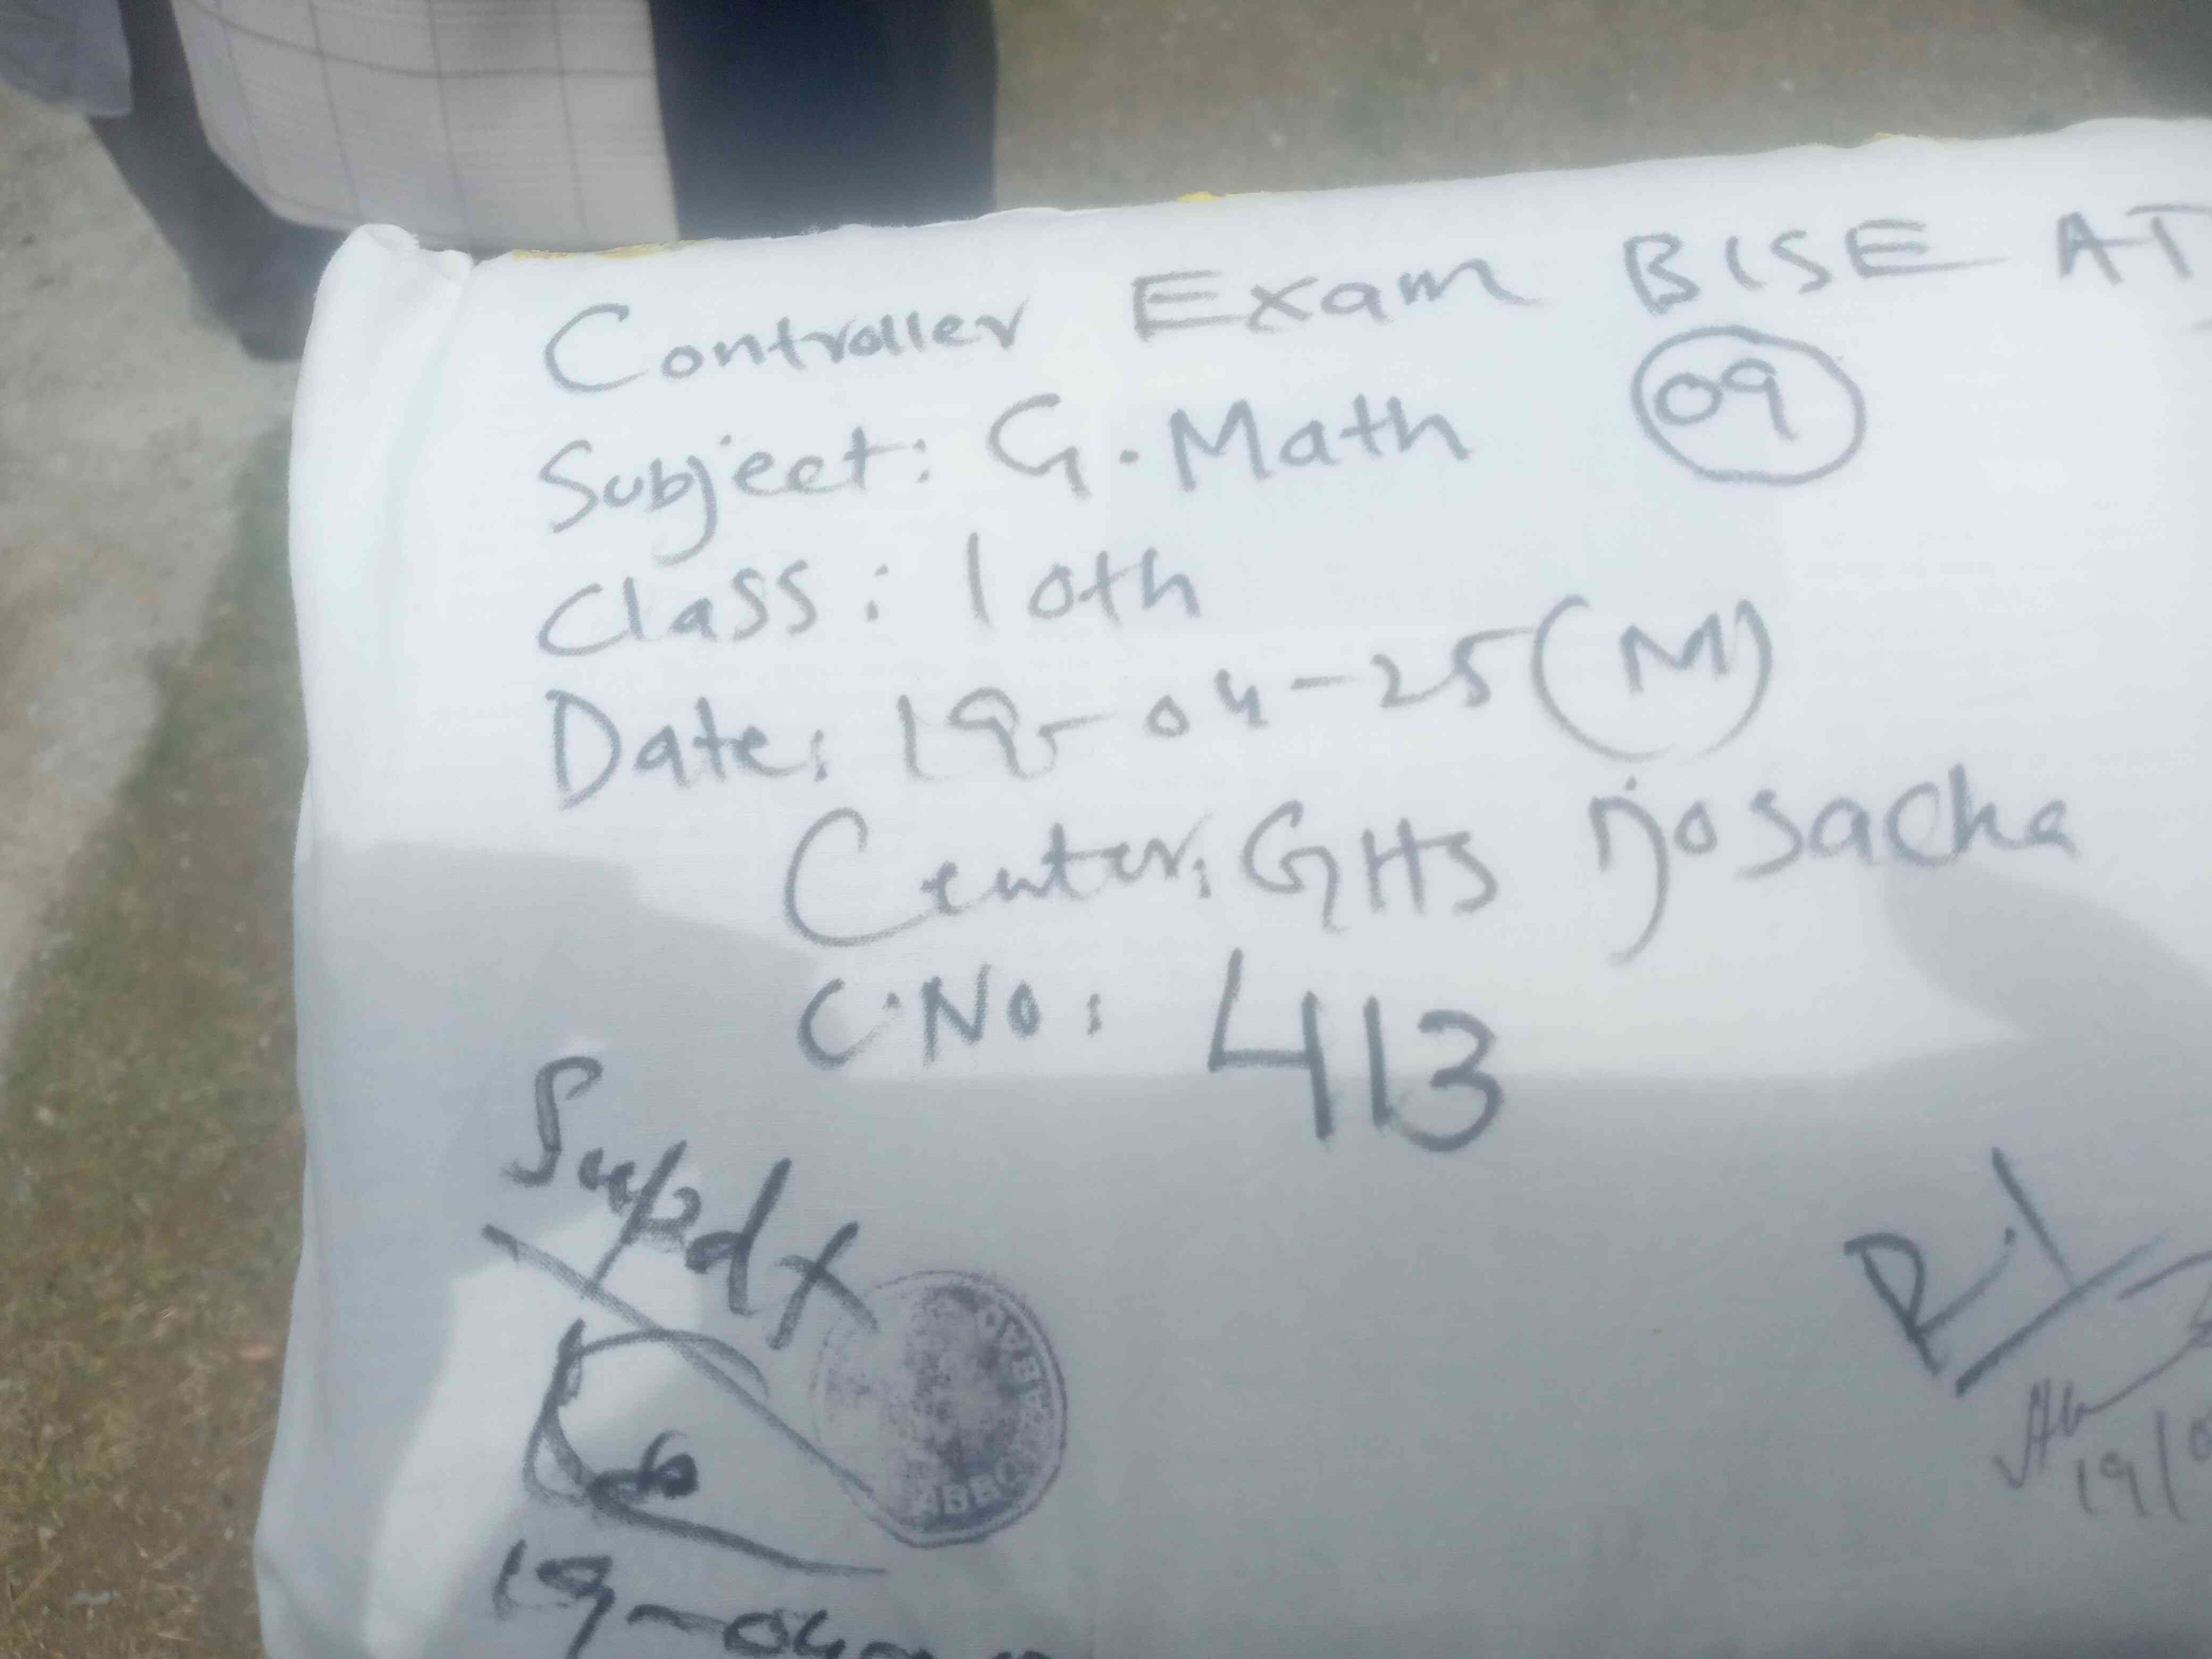 Controller Exam BISE AT
Subject: G.Math 09
Class: 10th
Date: 19-04-25 (M)
Center: GHS
C.No: 413
Supdt
R.I
19-04-
19/0